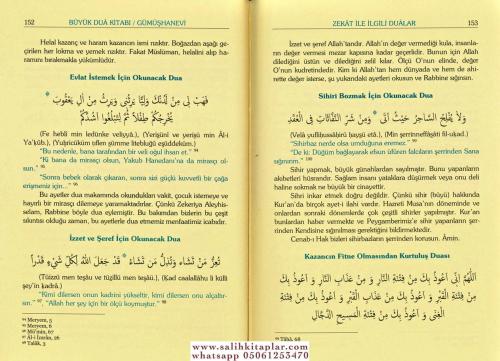 152 BÜYÜK DUÂ KİTABI / GÜMÜŞHANEVİ
Helal kazanç ve haram kazancın ismi rızıktır. Boğazdan aşağı ge-
çirilen her lokma ve yemek rızıktır. Fakat Müslüman, helalini alıp ha-
ramını bırakmakla yükümlüdür.
Evlat İstemek İçin Okunacak Dua
فَهَبْ لِى مِنْ لَدُنْكَ وَلِيًّا يَرِثُنِى وَيَرِثُ مِنْ اٰلِ يَعْقُوبَ *
يُخْرِجُكُمْ طِفْلًا ثُمَّ لِتَبْلُغُوا اَشُدَّكُمْ
(Fe hebli min ledünke veliyyâ.) (Yerisünî ve yerisü min Âl-i
Ya'kûb.) (Yuhricüküm tıflen sümme liteblüğû eşüddeküm.)
"Bu nedenle, bana tarafından bir veli oğul ihsan et." 94
"Ki bana da mirasçı olsun, Yakub Hanedanı'na da mirasçı ol-
sun." 95
"Sonra bebek olarak çıkaran, sonra sizi güçlü kuvvetli bir çağa
erişmeniz için..." 96
Bu ayetler dua makamında okundukları vakit, çocuk istemeye ve
hayırlı bir mirasçı dilemeye yaramaktadırlar. Çünkü Zekeriya Aleyhis-
selam, Rabbine böyle dua eylemiştir. Bu bakımdan bizlerin bu çeşit
sıkıntısı olduğu zaman, bu ayetlerle dua etmemiz menfaatimiz icabıdır.
İzzet ve Şeref İçin Okunacak Dua
تُعِزُّ مَنْ تَشَاءُ وَتُذِلُّ مَنْ تَشَاءُ * قَدْ جَعَلَ اللّٰهُ لِكُلِّ شَىْءٍ قَدْرًا
(Tüizzü men teşâu ve tüzillü men teşâü.), (Kad caalallâhu li külli
şey'in kadrâ.)
"Kimi dilersen onun kadrini yükseltir, kimi dilersen onu alçaltır-
sın." 97 "Allah her şey için bir ölçü koymuştur." 98
94 Meryem, 5
95 Meryem, 6
96 Mü'min, 67
97 Âl-i İmrân, 26
98 Talâk, 3
ZEKÂT İLE İLGİLİ DUÂLAR 153
İzzet ve şeref Allah'tandır. Allah'ın değer vermediği kula, insanla-
rın değer vermesi mezar kapısına kadar geçerlidir. Bunun için Allah
dilediğini üstün ve dilediğini zelil kılar. Ölçü O'nun elinde, değer
O'nun kudretindedir. Kim ki Allah'tan hem dünyada ve hem de ahi-
rette değer isterse, şu yukarıdaki ayetleri okusun ve Rabbine sığınsın.
Sihiri Bozmak İçin Okunacak Dua
وَلَا يُفْلِحُ السَّاحِرُ حَيْثُ اَتٰى * وَمِنْ شَرِّ النَّفَّاثَاتِ فِى الْعُقَدِ
"Sihirbaz nerde olsa umduğuna eremez." 99
"De ki: Düğüm bağlayarak efsun üfüren falcıların şerrinden Sana
sığınırım." 100
Sihir yapmak, büyük günahlardan sayılmıştır. Bunu yapanların
akıbetleri hüsrandır. Sağlam insanı yataklara düşürmek veya onu deli
haline sokmak ne büyük bir cinayettir.
Sihri inkar etmek doğru değildir. Çünkü sihir (büyü) hakkında
Kur'an'da birçok ayet-i ilahi vardır. Hazreti Musa'nın döneminde ve
onlardan sonraki dönemlerde çok çeşitli sihirler yapılmıştır. Kur'an
bunlardan haber vermekte ve Peygamberimiz'e sihir yapanların şer-
rinden Kendisine sığınılması gerektiğini bildirmektedir.
Cenab-ı Hak bizleri sihirbazların şerrinden korusun. Âmin.
Kazancın Fitne Olmasından Kurtuluş Duası
اَللّٰهُمَّ اِنِّى اَعُوذُ بِكَ مِنْ فِتْنَةِ النَّارِ وَ مِنْ عَذَابِ النَّارِ وَ اَعُوذُ بِكَ
مِنْ فِتْنَةِ الْقَبْرِ وَ اَعُوذُ بِكَ مِنْ عَذَابِ الْقَبْرِ وَ اَعُوذُ بِكَ مِنْ فِتْنَةِ
الْغِنٰى وَ اَعُوذُ بِكَ مِنْ فِتْنَةِ الْمَسِيحِ الدَّجَّالِ
99 Tâhâ, 68
www.salihkitaplar.com
whatsapp 05061253470